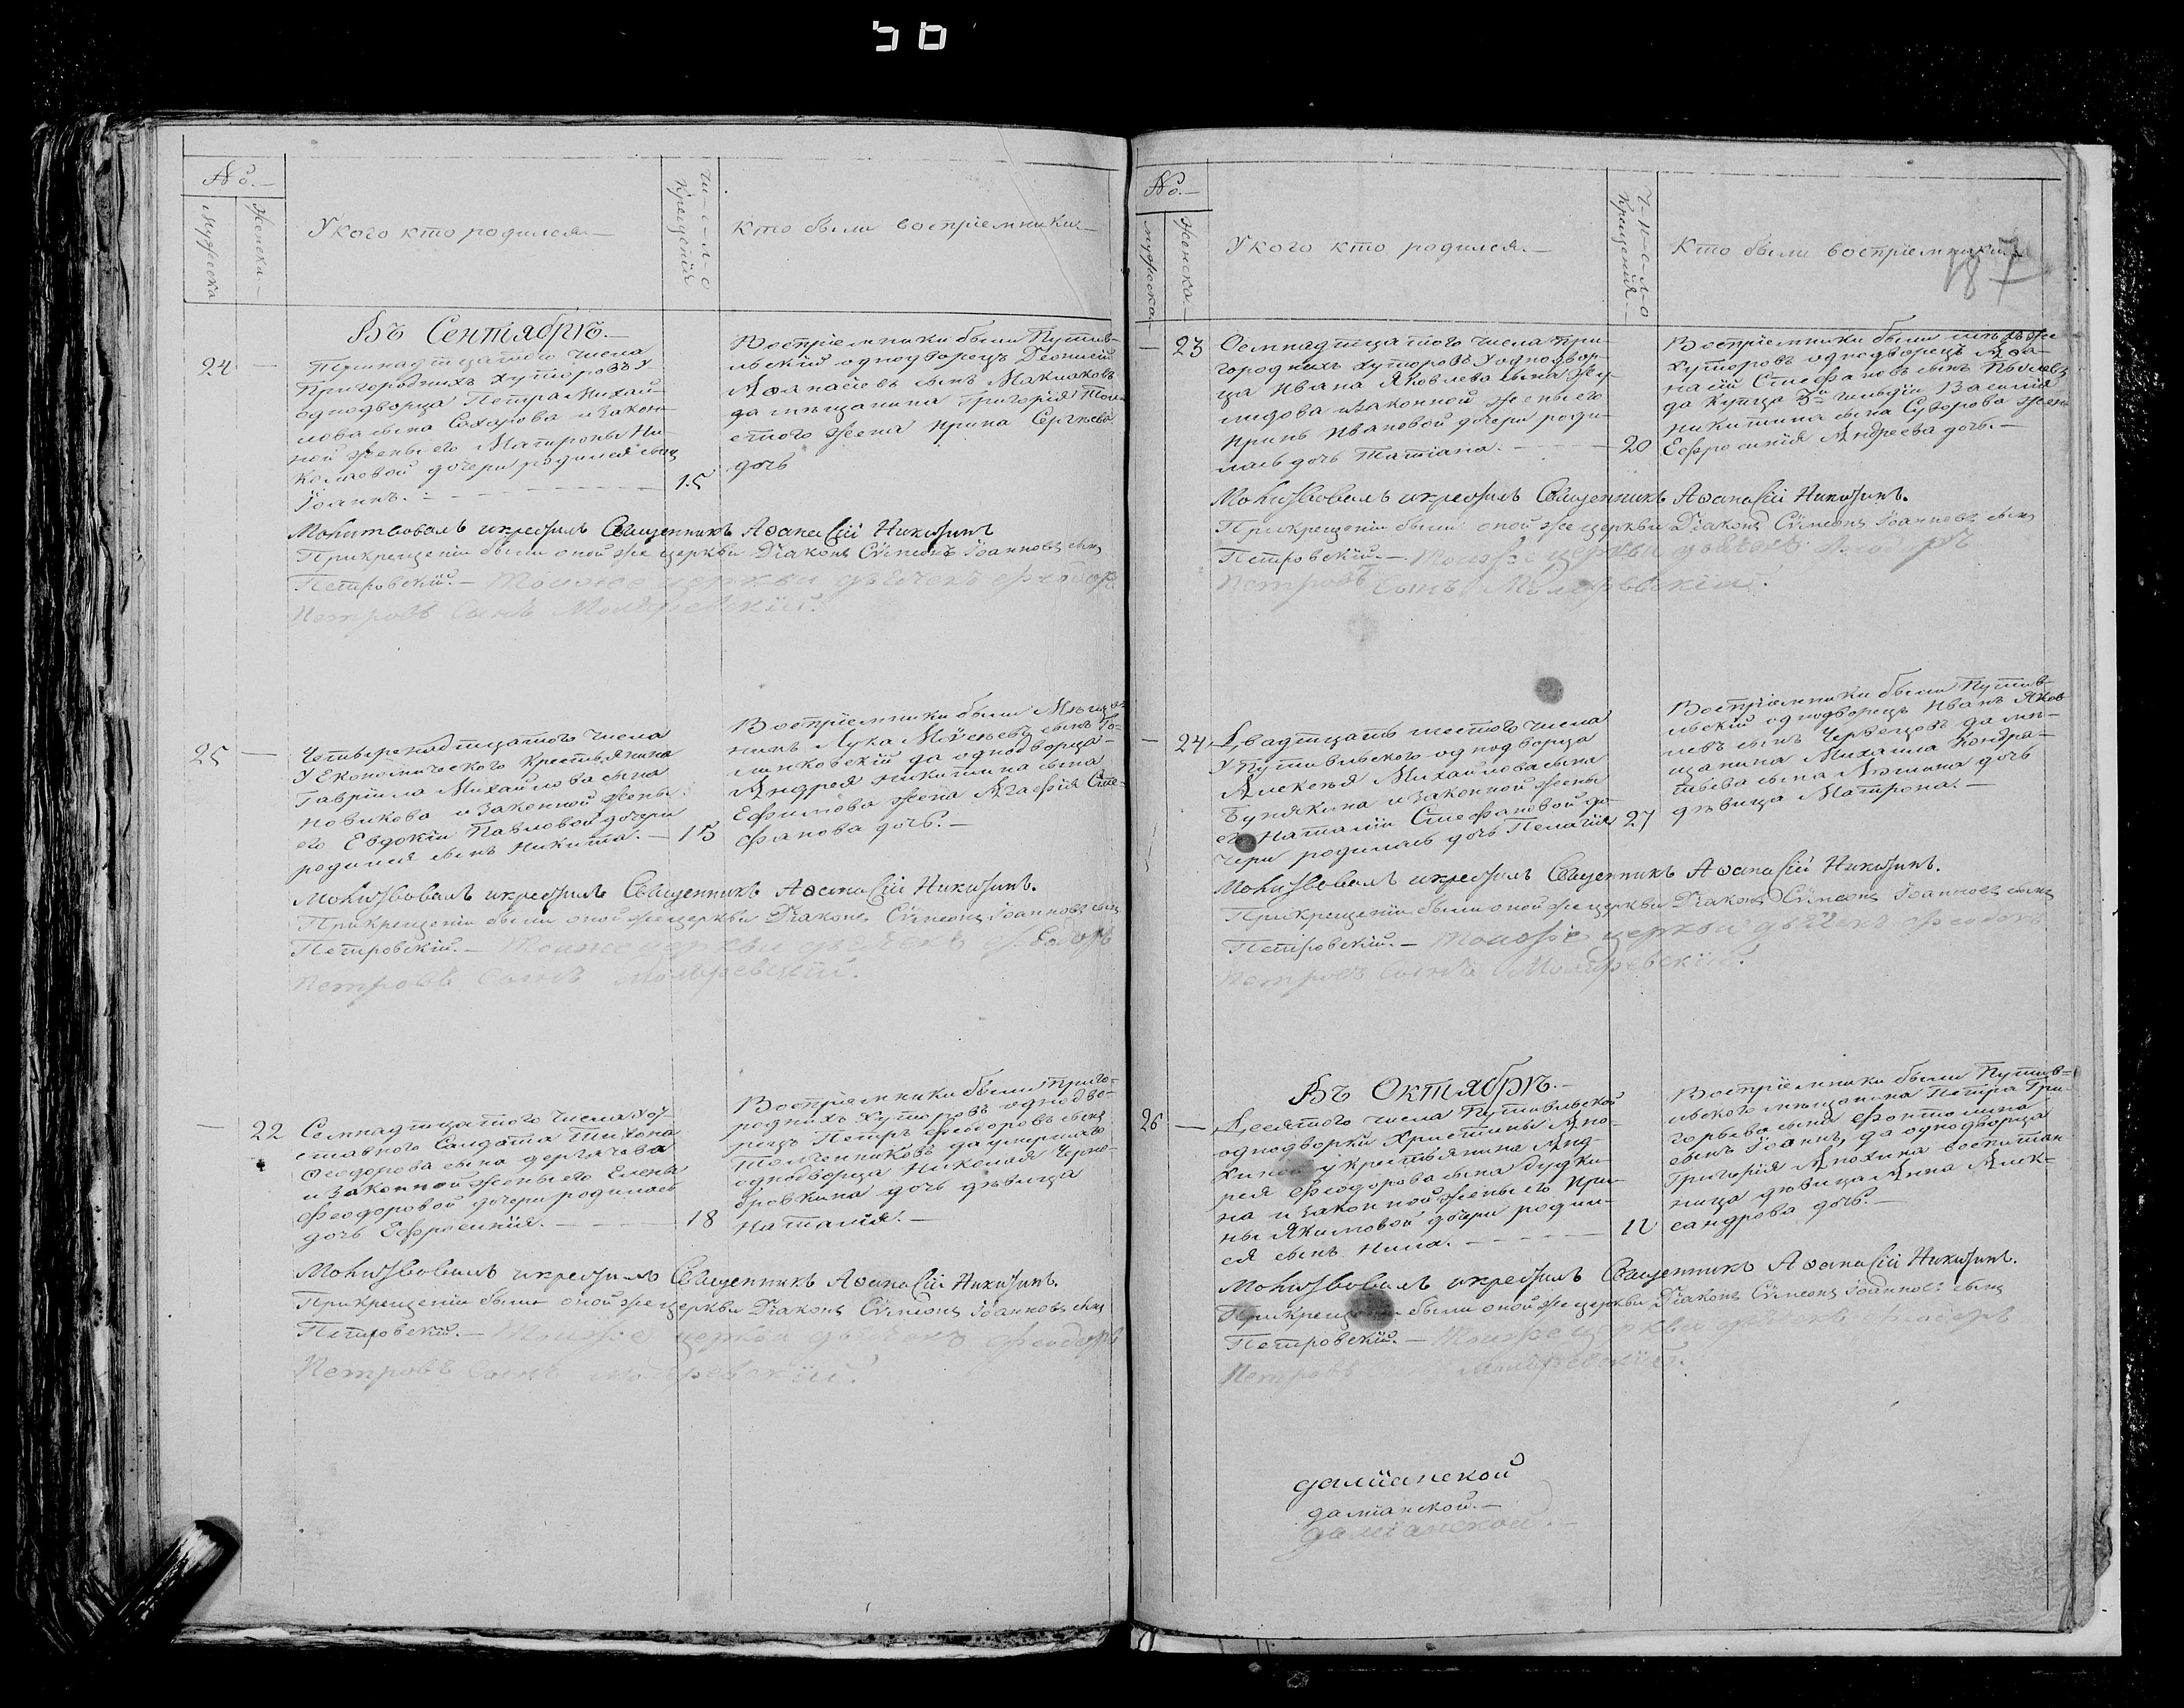 №.
Мужеска
Женска
У кого кто родился.
Чи-с-л-о
Крещенія
Кто были воспріемники
Въ Сентябрѣ.
24
Тринадтцатаго числа
Пригородныхъ хуторовъ у
однодворца Петра Михай-
лова сына Сахарова и закон-
ной жены его Матроны Ни-
колаовой дочери родился сынъ
Іоаннъ.
15
Воспріемники были Путив-
льскій однодворецъ Діонисій
Афанасіевъ сынъ Маклаковъ
да мѣщанина Григорія
жена Ирина Сергѣева
дочь
Молитвовалъ и крестилъ Священникъ Аѳанасій Никитинъ
При крещеніи были оной же церкви Діаконъ Сѵмеонъ Іоанновъ сынъ
Петровскій. Тоиже церкви дьячекъ Феодоръ
Петровъ Сынъ
25
Четыренадтцатаго числа
У Економическаго Крестьянина
Гавріила Михайлова сына
Новикова и законной жены
его Евдокіи Павловой дочери
родился сынъ Никита.
15
Воспріемники были Мѣща-
нинъ Лука Моѵсеевъ сынъ
да однодворца
Андрея Никитина сына
Ефимова жена Агафія Сте-
фанова дочь.
Молитвовалъ и крестилъ Священникъ Аѳанасій Никитинъ.
При крещеніи были оной же церкви Діаконъ Сѵмеонъ Іоанновъ сынъ
Петровскій. Тоиже церкви дьячекъ Феодоръ
Петровъ Сынъ
22
Семнадтцатаго числа у от-
ставного Салдата Тихона
Феодорова сына Дергачева
и законной жены его Елены
Феодоровой дочери родилась
дочь Ефросинія.
18
Воспріемники были Приго-
родныхъ Хуторовъ одно дво-
рецъ Петръ Феодоровъ сынъ
Толченниковъ да умершаго
однодворца Николая Черно-
бровкина дочь дѣвица
Наталія.
Молитвовалъ и крестилъ Священникъ Аѳанасій Никитинъ.
При крещеніи были оной же церкви Діаконъ Сѵмеонъ Іоанновъ сынъ
Петровскій. Тоиже церкви дьячекъ Феодоръ
Петровъ Сынъ
№.
Мужеска
Женска
У кого кто родился.
Ч-и-с-л-о
Крещенія
Кто были воспріемники
187
23
Осмнадтцатаго числа При-
городныхъ хуторовъ У однодвор-
ца Ивана Яковлева сына
и законной жены его
Ирины Ивановой дочери роди-
лась дочь Татіана.
20
Воспріемники были тѣхъ же
Хуторовъ однодворецъ Афа-
насій Стефановъ сынъ
да Купца 3й гильдіи Василія
Никитина сына Суворова жена
Ефросинія Андреева дочь.
Молитвовалъ и крестилъ Священникъ Аѳанасій Никитинъ.
При крещеніи были оной же церкви Діаконъ Сѵмеонъ Іоанновъ сынъ
Петровскій. Тоиже церкви дьячекъ Феодоръ
Петровъ Сынъ
24
Двадтцать шестого числа
У Путивльского однодворца
Алексѣя Михайлова сына
Бунякина и законной жены
его Наталіи Стефановой до-
чери родилась дочь Пелагія
27
Воспріемники были Путив-
льскій однодворецъ Иванъ Яков-
левъ сынъ Червецовъ да мѣ-
щанина Михаила Кондра-
тьева сына Алешина дочь
дѣвица Матрона.
Молитвовалъ и крестилъ Священникъ Аѳанасій Никитинъ.
При крещеніи были оной же церкви Діаконъ Сѵмеонъ Іоанновъ сынъ
Петровскій. Тоиже церкви дьячекъ Феодоръ
Петровъ Сынъ
Въ Октябрѣ.
26
Десятого числа Путивльской
однодворки Христины Ано-
хиной у крестьянина Анд-
рея Феодорова сына Будки-
на и законной жены его Ири-
ны Якимовой дочери родил-
ся сынъ Нила.
12
Воспріемники были Путив-
льского мѣщанина Петра Гри-
горьева сына
сынъ Іоаннъ, да однодворца
Григорія Анохина воспитан-
ница дѣвица Анна Алек-
сандрова дочь.
Молитвовалъ и крестилъ Священникъ Аѳанасій Никитинъ.
При крещеніи были оной же церкви Діаконъ Сѵмеонъ Іоанновъ сынъ
Петровскій. Тоиже церкви дьячекъ Феодоръ
Петровъ
даміанской
даміанской.
даміанской.